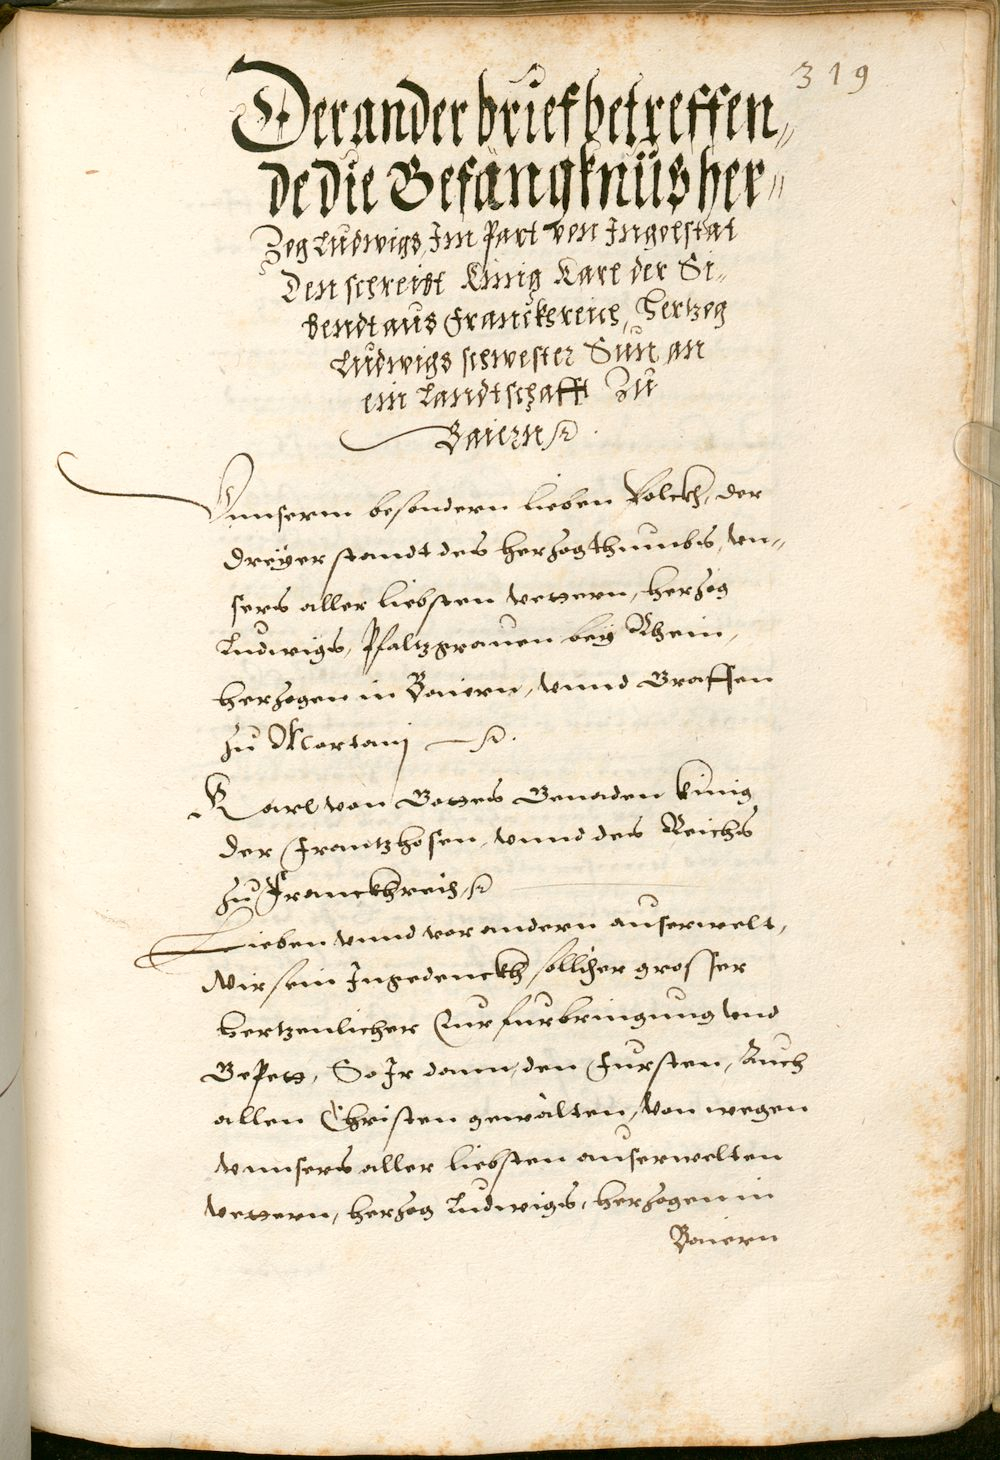 319
Der ander brief betreffen„
de die Gefängknüß her„
Zog Ludwigs, Im Part von Ingolstat
Den schreibt Künig Karl der Si„
bendt aus Franckhreich, Hertzog
Ludwigs schwester Sun, an
ein Landtschafft Zu
Baiern
Vnnserm besondern lieben Volckh, der
dreÿer standt des herzogthumbs, vn„
sers aller liebsten vettern, herzog
Ludwigs, Pfaltzgrauen beÿ Rhein,
herzogen in Bairn, vnnd Graffen
zu Mortani
Karl von Gottes Genaden künig
der Frantzhosen, vnnd des Reichs
zu Franckhreich
Lieben vnnd vor andern auserwelt,
Wir sein Ingedenckh sollicher grosser
hertzenlicher Eur furbringung vnd
Gepett, So Ir dann, den Fursten, Auch
allen Christen gewälten, von wegen
vnnsers aller liebsten auserwelten
vettern, herzog Ludwigs, herzogen in
Bairn